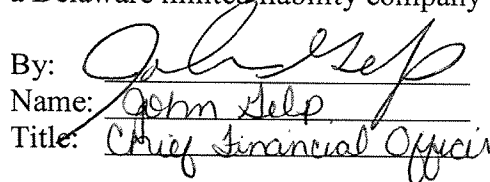 a Delaware limited liability company
By: John Gelp
Name: John Gelp
Title: Chief Financial Officer